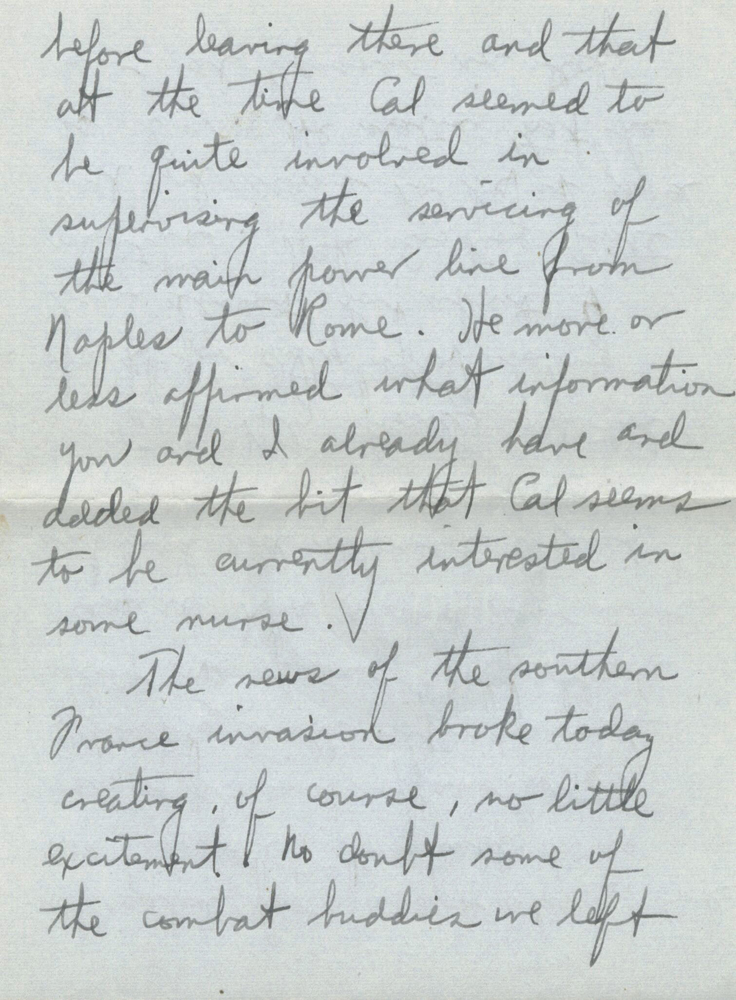 before leaving there and that
att the time Cal seemed to
be quite involved in
supervising the servicing of
the main power line from
Naples to Rome. He more or
less affirmed what information
you and I already have and
added the bit that Cal seems
to be currently interested in
some nurse.
The news of the southern
France invasion broke today
creating, of course, no little
excitement. No doubt some of
the combat buddies we left